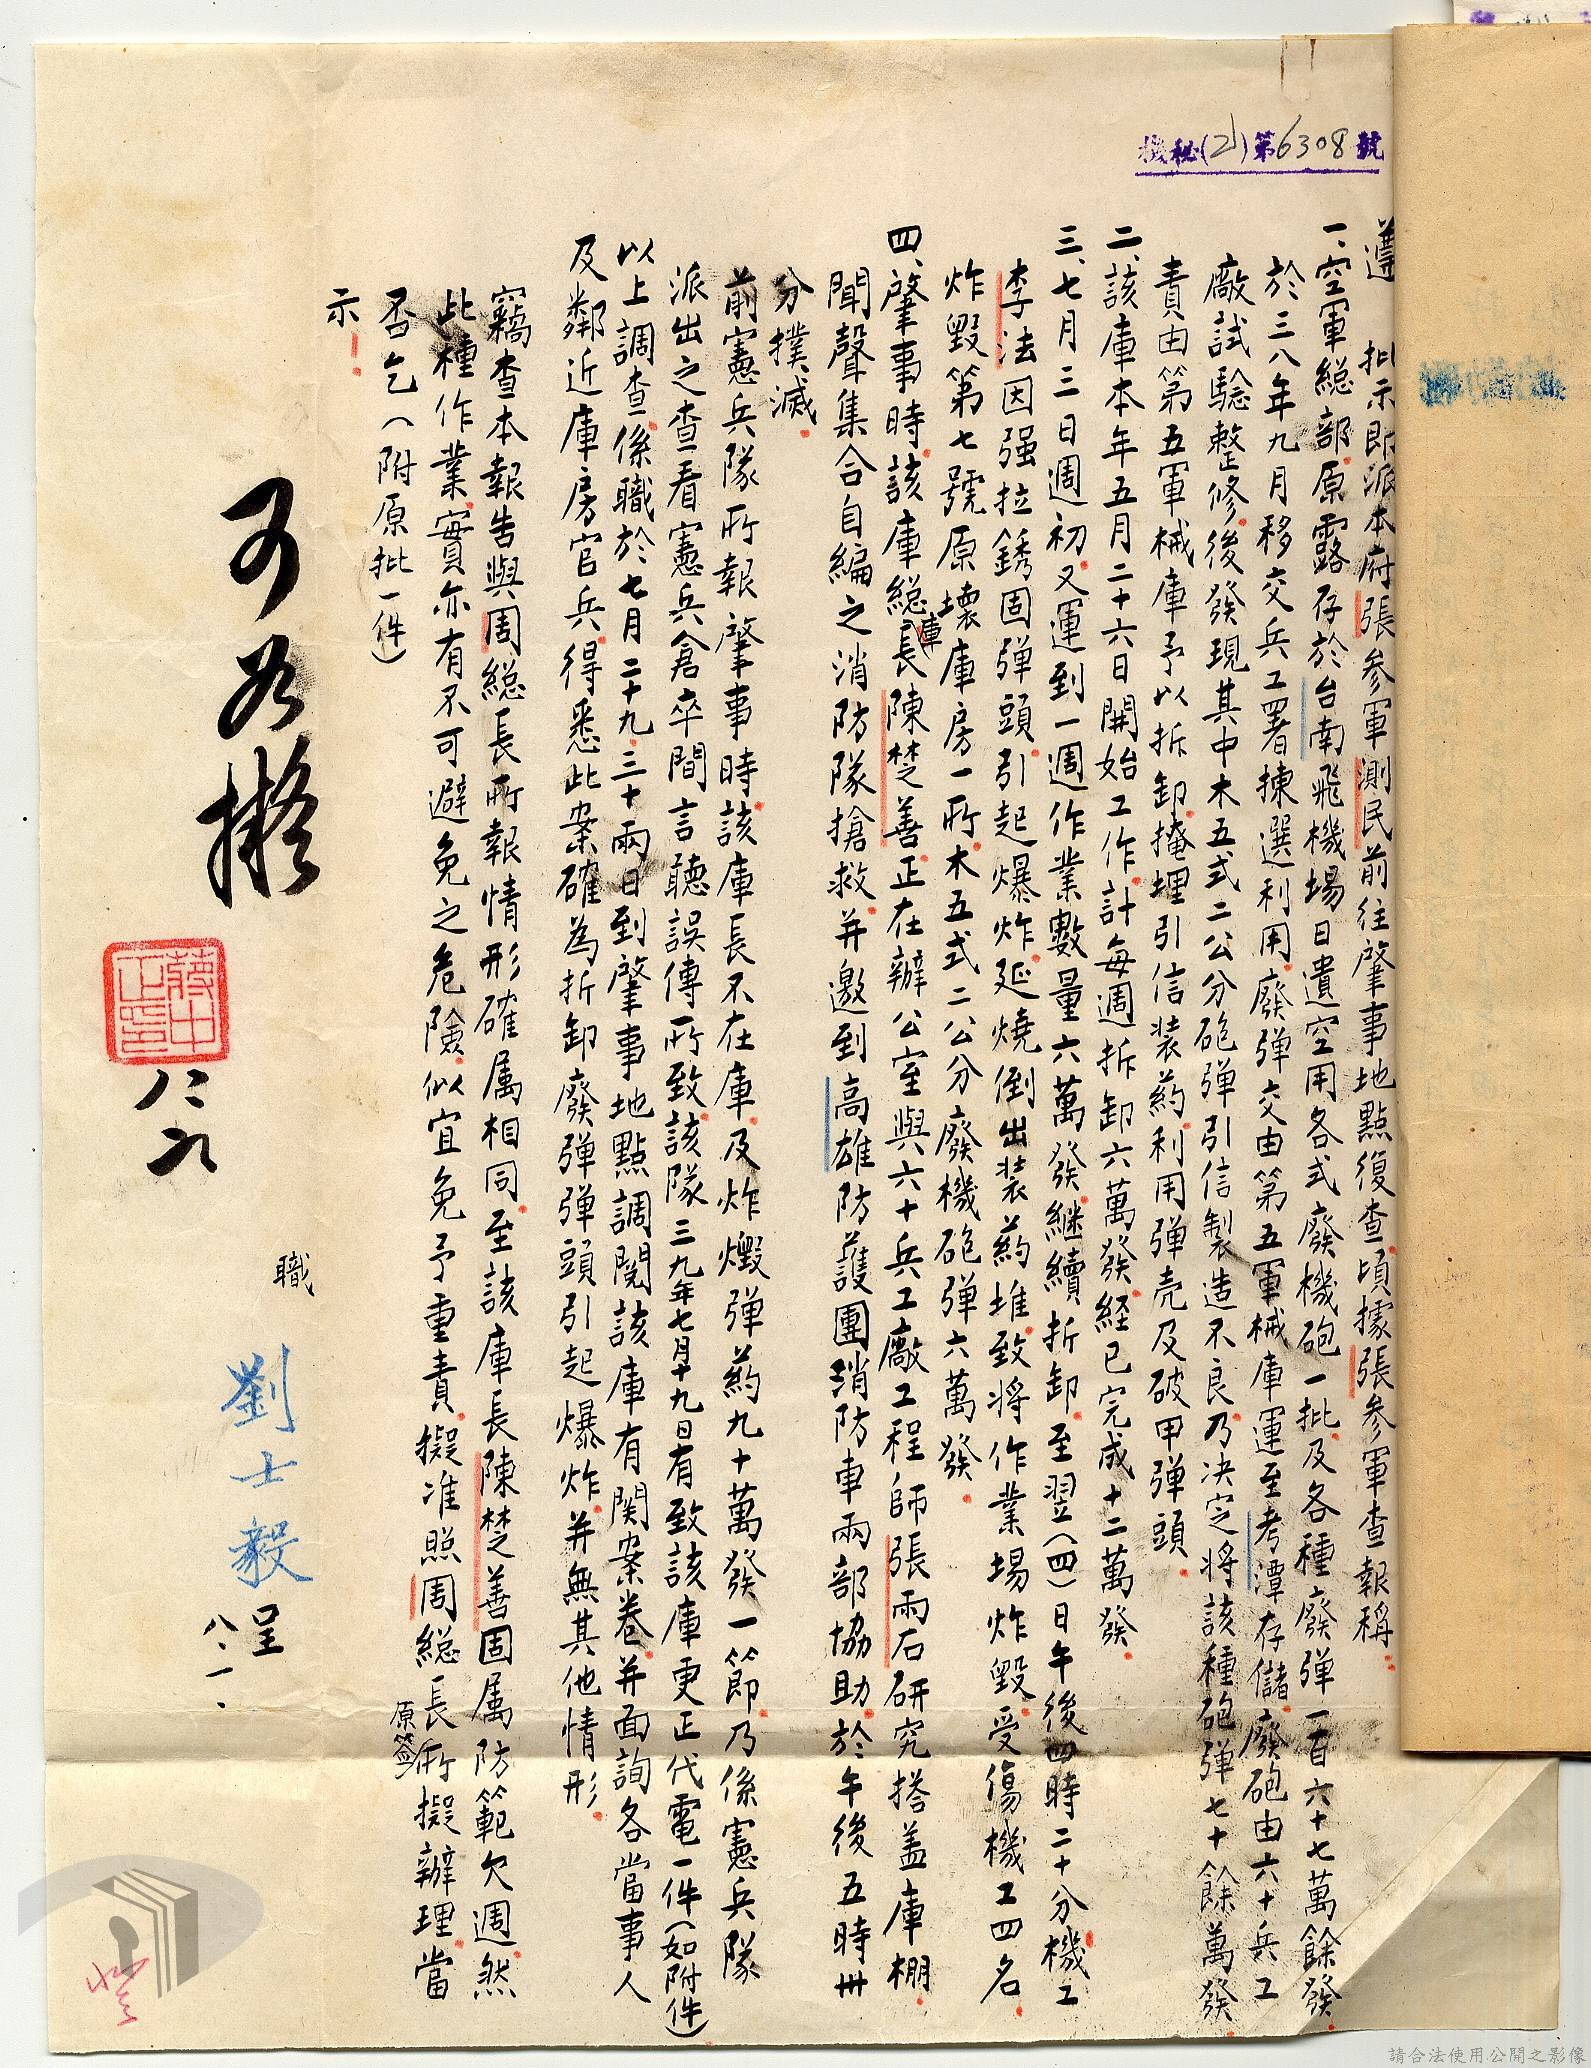 機秘(21)第6308號
遵 批示即派本府張參軍測民前往肇事地點復查頃據張參軍查報稱
一、空軍總部原露存於台南飛機場日遺空用各式廢機砲一批及各種廢彈一百六十七萬餘發
於三八年九月移交兵工署揀選利用廢彈交由第五軍械庫運至考潭存儲廢砲由六十兵工
廠試驗整修後發現其中木五式二公分砲彈引信製造不良乃決定將該種砲彈七十餘萬發
責由第五軍械庫予以拆卸掩埋引信裝葯利用彈壳及破甲彈頭
二、該庫本年五月二十六日開始工作計每週拆卸六萬發經已完成十二萬發
三、七月三日週初又運到一週作業數量六萬發繼續折卸至翌(四)日午後四時二十分機工
李法因强拉銹固彈頭引起爆炸延燒倒出裝葯堆致將作業場炸毀受傷機工四名
炸毀第七號原壞庫房一所木五式二公分廢機砲彈六萬發
四、肇事時該庫總庫長陳楚善正在辦公室與六十兵工廠工程師張雨石研究搭盖庫棚
聞聲集合自編之消防隊搶救并邀到高雄防護團消防車兩部協助於午後五時卅
分撲滅
前憲兵隊所報肇事時該庫長不在庫及炸燬彈葯九十萬發一節乃係憲兵隊
派出之查看憲兵倉卒間言聽誤傳所致該隊三九年七月十九日有致該庫更正代電一件(如附件)
以上調查係職於七月二十九、三十兩日到肇事地點調閱該庫有関案卷并面詢各當事人
及鄰近庫房官兵得悉此案確為折卸廢彈彈頭引起爆炸并無其他情形
竊查本報告與周總長所報情形確属相同至該庫長陳楚善固属防範欠週然
此種作業實亦有不可避免之危險似宜免予重責擬准照周總長原簽所擬辦理當
否乞(附原批一件)
示
職 劉士毅 呈 八、一、
可如擬
蔣中正印
八、二
請合法使用公開之影像